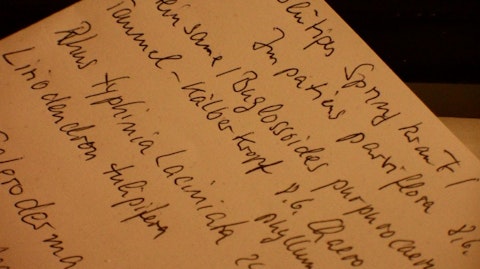 Springkraut /
Impatiens parviflora 8.6.
einsame / Buglossoides purpurocaer
Taumel-Kälberkropf 8.6. Chaero
phyllum
Rhus typhinia Laciniata
Liriodendron tulipifera
leroderma